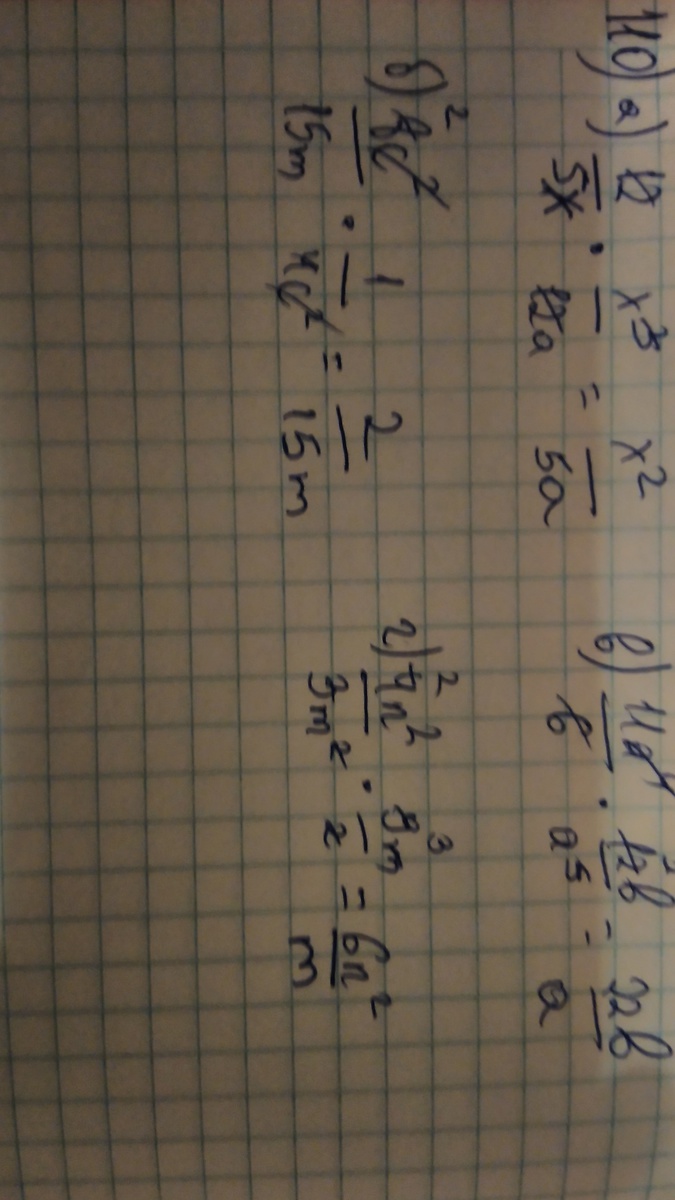 110) а) 12/5x · x³/12a = x²/5a   в) 11a⁴/6 · 12b/a⁵ = 22b/a
б) 8c²/15m · 1/4c² = 2/15m   г) 4n²/3m² · 9m/2 = 6n²/m